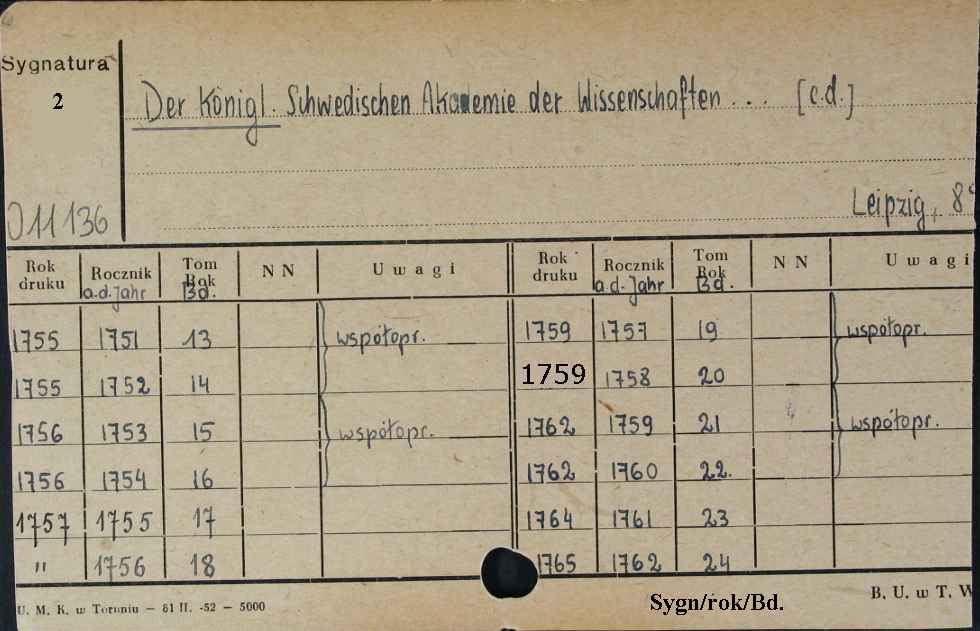 Sygnatura
2
Der Königl. Schwedischen Akademie der Wissenschaften ... [c.d.]
011136
Leipzig, 8°
Rok druku Rocznik a.d. Jahr Tom Rok Bd. NN Uwagi Rok druku Rocznik a.d. Jahr Tom Rok Bd. NN Uwagi
1755 1751 13 współopr. 1759 1757 19 współopr.
1755 1752 14 1759 1758 20
1756 1753 15 współopr. 1762 1759 21 współopr.
1756 1754 16 1762 1760 22.
1757 1755 17 1764 1761 23
" 1756 18 1765 1762 24
U. M. K. w Toruniu – 61 II. -52 – 5000
Sygn/rok/Bd.
B. U. w T. W